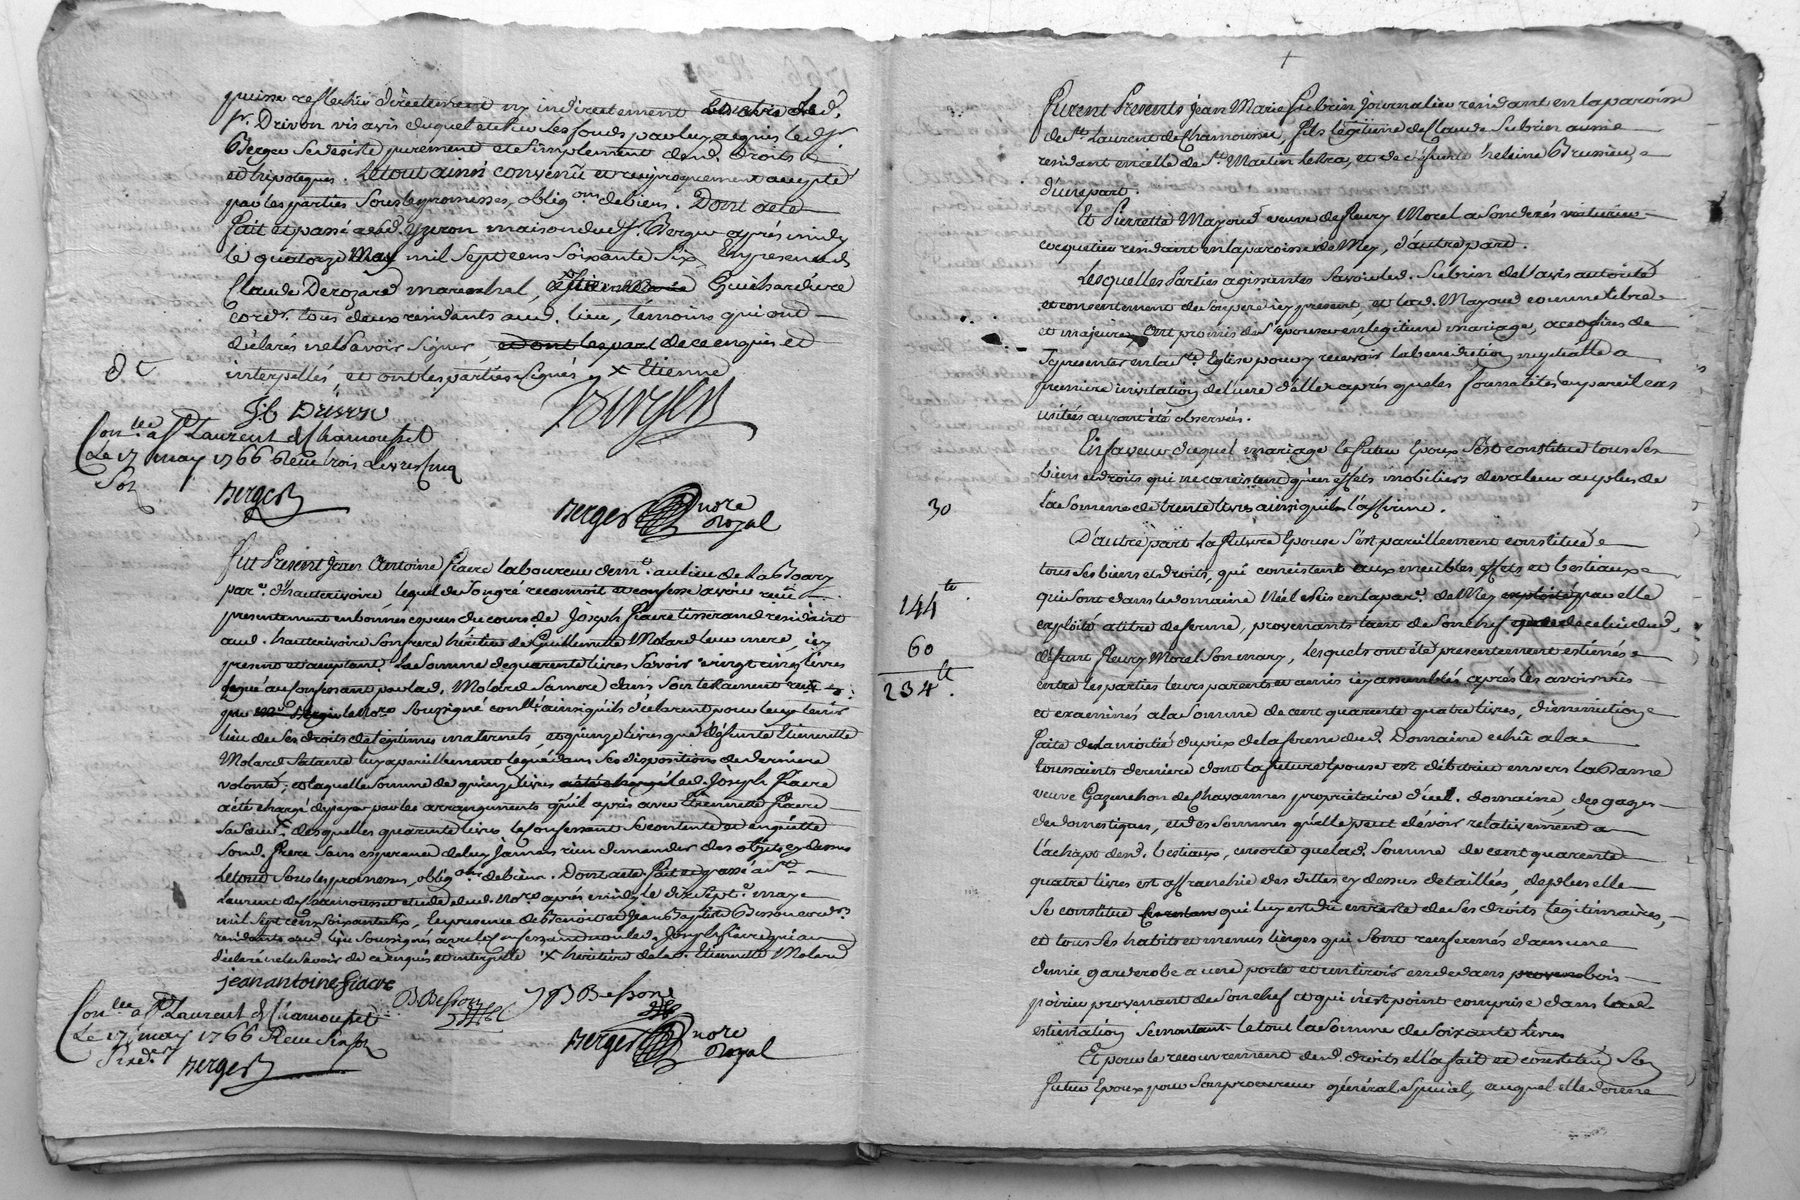 puisse reflechir directement ny indirectement
sr. Drivon vis avis duquel et sur les fonds par luy acquis led. sr.
Berger se desiste purement et simplement desd. droits
et hipoteques. Le tout ainsi convenû et reciproquement accepté
par les parties sous les promesses, oblig.on de biens. Dont acte
fait et passé aud. yzeron maison dud. sr. Berger après midy
le quatorze May mil sept cens soixante six, En presence de
Claude Derozard marechal, Guichard
cord.r tous deux residants aud. lieu, témoins qui ont
déclarés ne sçavoir signer, de ce enquis et
interpellés, et ont les parties signés x Etienne
JB Drivon
Berger
Con.lée a St. Laurent de Chamousset
Le 17 may 1766 Reçu trois livres cinq
sols
Berger
Berger no.re
Royal
Fut Present Jean Antoine Fiacre laboureur dem.t au lieu de La
par.e d'hauterivoire lequel de son gré reconnoit et confesse avoir reçû
presentement en bonnes especes du cours de Joseph Fiacre tisserand residant
aud. hauterivoire son frere héritier de Guillemette Molard leur mere, icy
present et acceptant La somme de quarente livres sçavoir vingt cinq livres
legué au confessant par lad. Molard sa mere dans son testament reçû
par le no.re soussigné con.lé ainsi qu'ils declarent pour luy tenir
lieu de ses droits de legitimes maternels, et quinze livres que défunte Etiennette
Molard sa tante luy a pareillement legué dans ses dispositions de derniere
volonté, et laquelle somme de quinze livres led. Joseph Fiacre
a été chargé de payer par les arrangements qu'il a pris avec Etiennette Fiacre
sa sœur x desquelles quarente livres le confessant se contente et en quitte
sond. frere sans esperance de luy jamais rien demander des objets cy dessus
Le tout sous les promesses, oblig.on de biens. Dont acte fait et passé a St.
Laurent de Chamousset etude dud. no.re après midy le dix sept.e may
mil sept cens soixante six, En presence de Benoit et Jean Baptiste Besson cord.rs
residants aud. lieu soussignés avec le confessant non led. Joseph Fiacre qui a
declaré ne le sçavoir de ce enquis et interpellé x heritiere de lad. Etiennette Molard
jean antoine fiacre
B Besson
J B Besson
Con.lée a St. Laurent de Chamousset
Le 17 may 1766 Reçu
Six d.
Berger
Berger no.re
Royal
Furent Presents Jean Marie Subrin Journalier residant en la paroisse
de St. Laurent de Chamousset, fils légitime de Claude Subrin aussi
residant en celle de St. Martin et de défunte heleine Brussieu
d'une part.
Et Pierrette Mayoud veuve de fleury Morel a son décés voiturier
coquetier residant en la paroisse de Mey, d'autre part.
Lesquelles Parties agissantes sçavoir led. Subrin de l'avis autorité
et consentement de son pere icy present, et lad. Mayoud comme libre
et majeure Ont promis de s'epouser en legitime mariage, a ces fins de
se presenter en la Ste. Eglise pour y recevoir la benediction nuptialle a
premiere invitation de l'un d'elles après que les formalités en pareil cas
usités auront été observés.
En faveur duquel mariage le futur Epoux s'est constitué tous ses
biens et droits qui ne consistent qu'en effets mobiliers de valeur au plus de
30
La somme de trente livres ainsi qu'il l'affirme.
D'autre part La future Epouse s'est pareillement constituée
tous ses biens et droits, qui consistent aux meubles effets et bestiaux
144tt
qui sont dans le domaine Néel situé en la par.e de Mey par elle
exploité a titre de ferme, provenants tant de son chef que de celui dud.
60
défunt fleury Morel son mary, Lesquels ont été presentement estimés
234tt
entre les parties leurs parents et amis icy assemblés après les avoir vus
et examinés a la somme de cent quarente quatre livres, diminution
faite de la moitié du prix de la ferme dud. Domaine echû a la
toussaints derniere dont la future Epouse est débitrice envers la Dame
veuve Gazanchon de Chavannes proprietaire d'icel. domaine, des gages
de domestiques, et des sommes qu'elle peut dévoir relativement a
l'achapt desd. bestiaux, en sorte que lad. somme de cent quarente
quatre livres est affranchie des dettes cy dessus detaillées, de plus elle
se constitue qui luy est dû en reste de ses droits légitimaires,
et tous ses habits et menus linges qui sont renfermés dans une
demie garderobe a une porte et un tiroir en dedans bois
poirier provenant de son chef et qui n'est point comprise dans lad.
estimation se montant le tout la somme de soixante livres
Et pour le recouvrement desd. droits ell'a fait et constitué son
futur Epoux pour son procureur général special, auquel elle donne